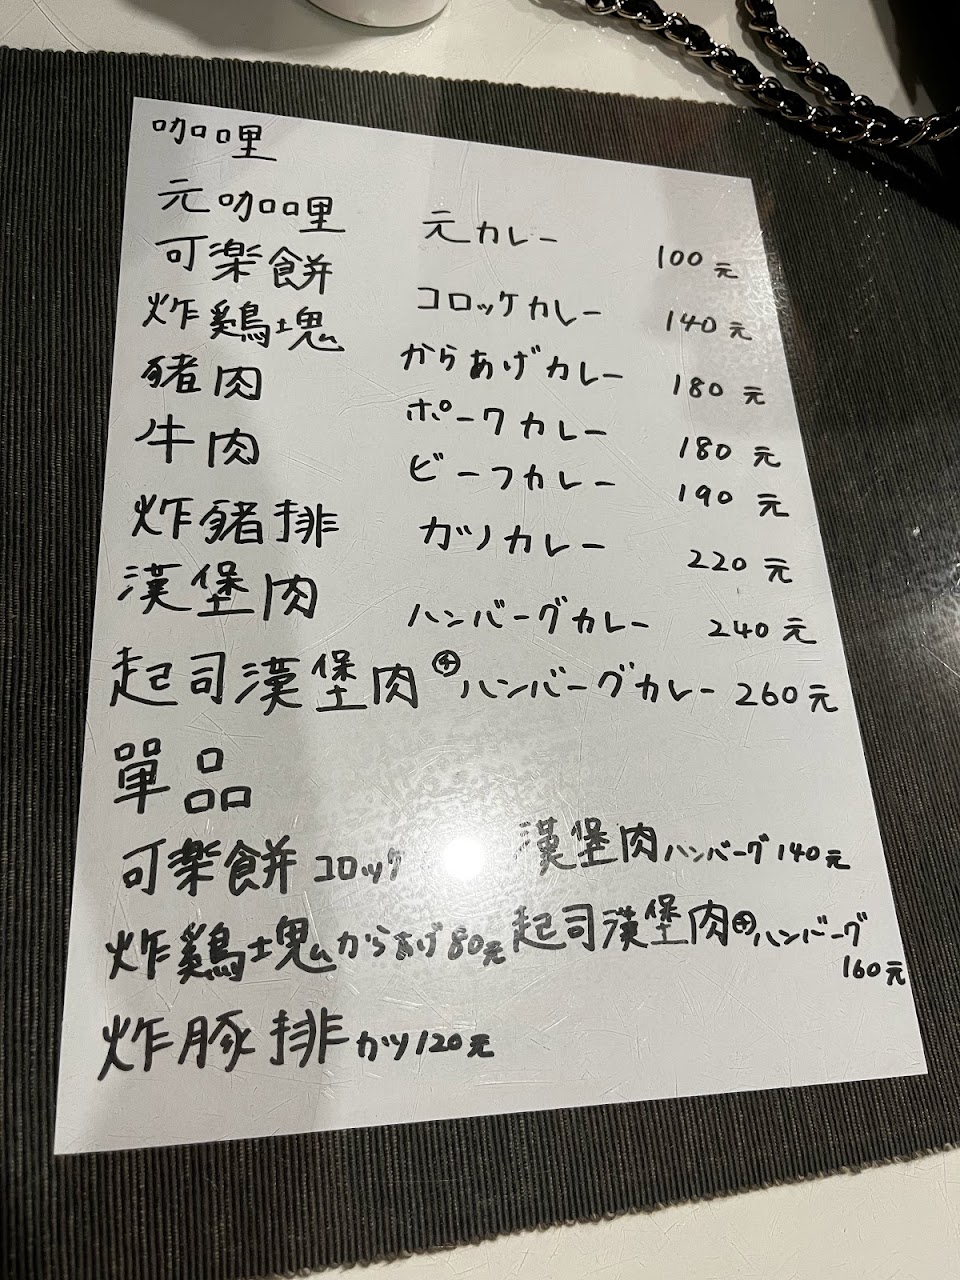 咖哩
元咖哩 元カレー 100元
可楽餅 コロッケカレー 140元
炸鶏塊 からあげカレー 180元
豬肉 ポークカレー 180元
牛肉 ビーフカレー 190元
炸豬排 カツカレー 220元
漢堡肉 ハンバーグカレー 240元
起司漢堡肉 ㋠ハンバーグカレー 260元
單品
可楽餅 コロッケ 漢堡肉 ハンバーグ 140元
炸鶏塊 からあげ 80元 起司漢堡肉 ㋠ハンバーグ
160元
炸豚排 カツ 120元